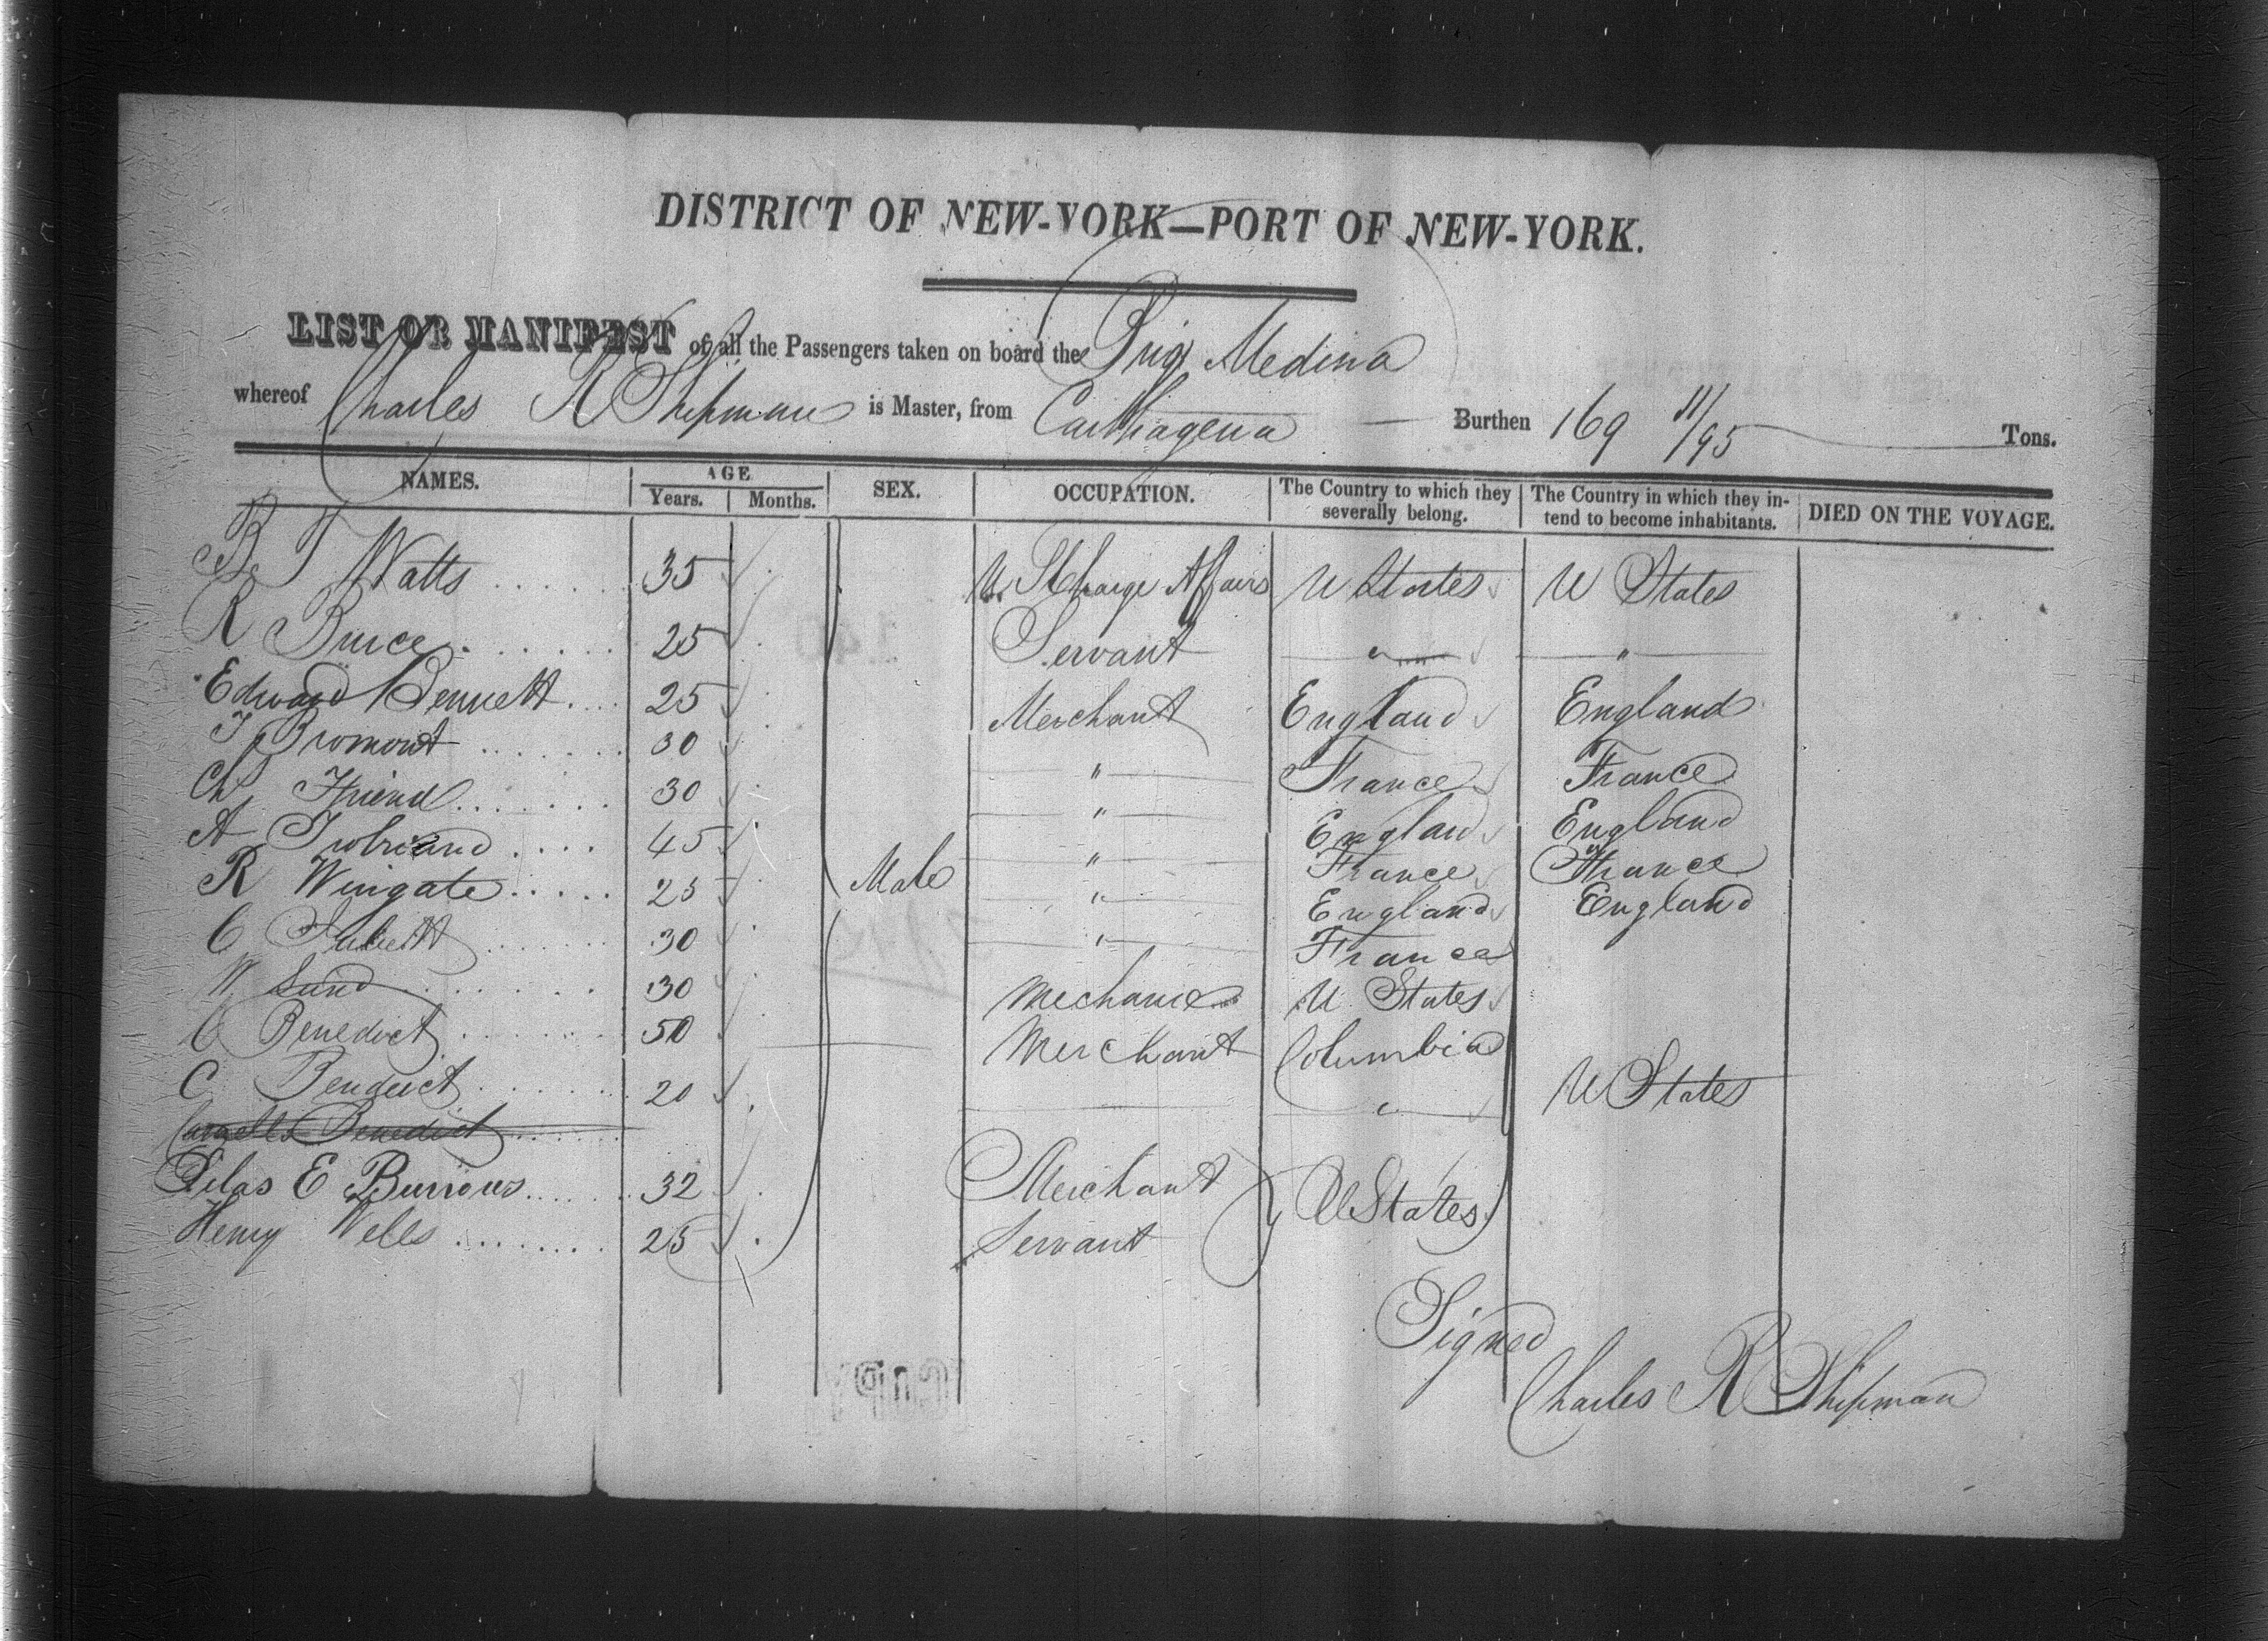 DISTRICT OF NEW-YORK—PORT OF NEW-YORK.
LIST OR MANIFEST of all the Passengers taken on board the Brig Medina
whereof Charles R Shipman is Master, from Carthagena Burthen 169 11/95 Tons.
NAMES. AGE Years. Months. SEX. OCCUPATION. The Country to which they severally belong. The Country in which they intend to become inhabitants. DIED ON THE VOYAGE.
B T Watts 35 U. St Charge Affairs U States U States
R Bruce 25 Servant " "
Edward Bennett 25 Merchant England England
Bromont 30 " France France
Ch Friend 30 " England England
A 45 " France France
R Wingate 25 Male " England England
C 30 " France
W Sand 30 Mechanic U States
C Benedict 50 Merchant Columbia
C Benedict 20 " U States
Benedict
Silas E Burrows 32 Merchant U States
Henry Wells 25 Servant
Signed
Charles R Shipman